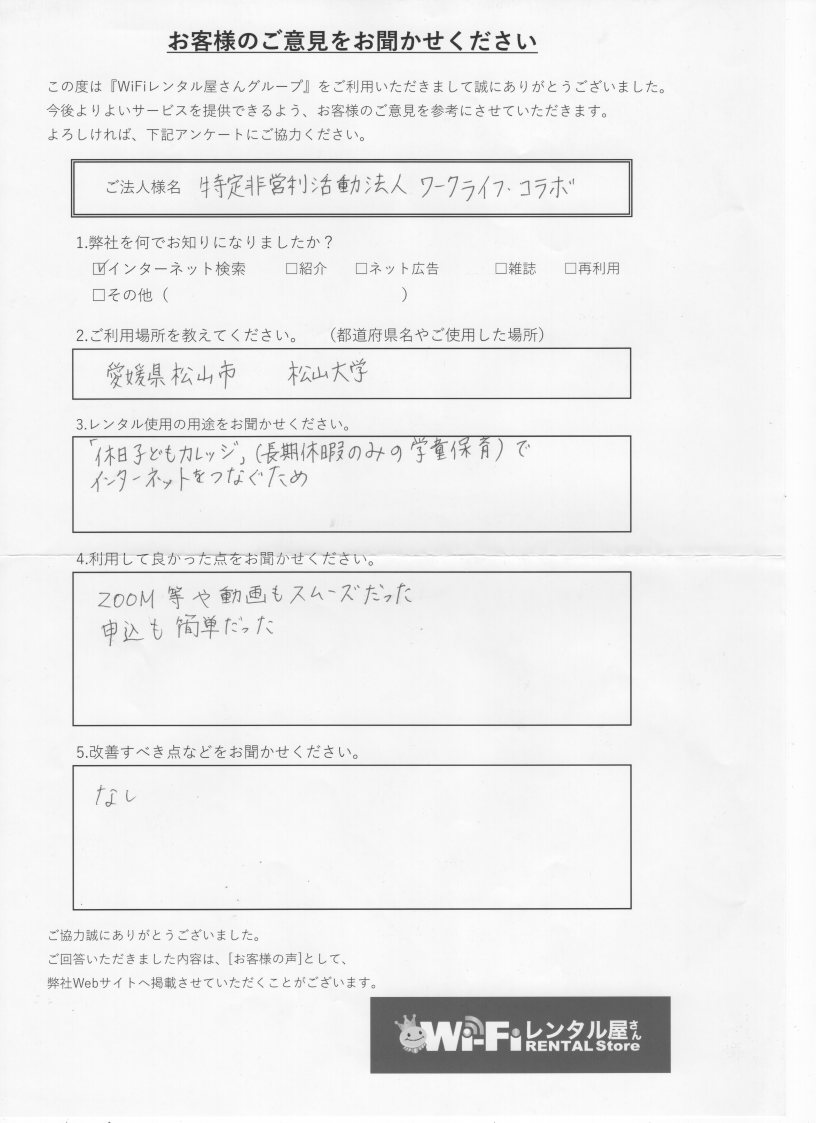 お客様のご意見をお聞かせください
この度は『WiFiレンタル屋さんグループ』をご利用いただきまして誠にありがとうございました。
今後よりよいサービスを提供できるよう、お客様のご意見を参考にさせていただきます。
よろしければ、下記アンケートにご協力ください。
ご法人様名 特定非営利活動法人 ワークライフ・コラボ
1.弊社を何でお知りになりましたか?
☑インターネット検索 □紹介 □ネット広告 □雑誌 □再利用
□その他( )
2.ご利用場所を教えてください。 (都道府県名やご使用した場所)
愛媛県松山市 松山大学
3.レンタル使用の用途をお聞かせください。
「休日子どもカレッジ」(長期休暇のみの学童保育)で
インターネットをつなぐため
4.利用して良かった点をお聞かせください。
ZOOM等や動画もスムーズだった
申込も簡単だった
5.改善すべき点などをお聞かせください。
なし
ご協力誠にありがとうございました。
ご回答いただきました内容は、[お客様の声]として、
弊社Webサイトへ掲載させていただくことがございます。
Wi-Fiレンタル屋さん
RENTAL Store